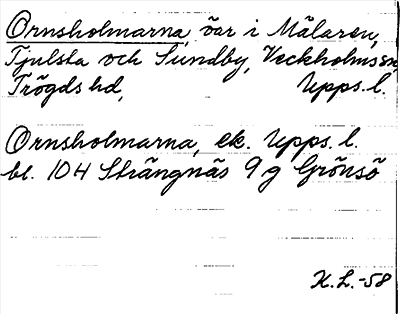 Ornsholmarna, öar i Mälaren,
Tjulsta och Sundby, Veckholms sn,
Trögds hd, Upps. l.
Ornsholmarna, ek. Upps. l.
bl. 104 Strängnäs 9 g Grönsö
K.L.-58